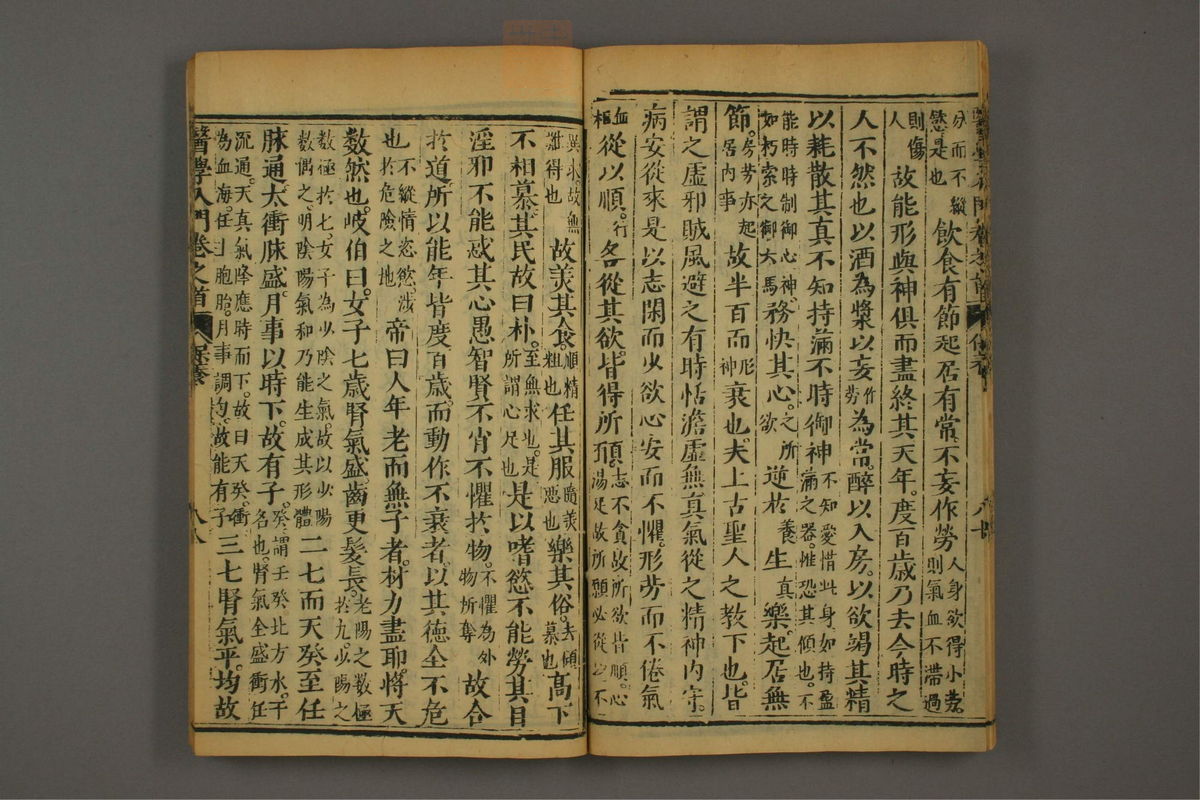 分而不縱
慾是也
飲食有節起居有常不妄作勞
人身欲得小勞
則氣血不滯過
則傷
人
故能形與神俱而盡終其天年度百歲乃去今時之
人不然也以酒為漿以妄
作
勞
為常醉以入房以欲竭其精
以耗散其真不知持滿不時御神
不知愛惜此身如持盈
滿之器惟恐其傾也不
能時時制御心神
如朽索之御六馬
務快其心
之所
欲
逆於
養
生
真
樂起居無
節
房勞亦起
居內事
故半百而
形
神
衰也夫上古聖人之教下也皆
謂之虛邪賊風避之有時恬澹虛無真氣從之精神內守
病安從來是以志閑而少欲心安而不懼形勞而不倦氣
血
樞
從以順
行
各從其欲皆得所願
志不貪故所欲皆順心
易足故所願必從以不
異求故無
難得也
故美其食
順精
粗也
任其服
隨美
惡也
樂其俗
去傾
慕也
高下
不相慕其民故曰朴
至無求也是
所謂心足也
是以嗜慾不能勞其目
淫邪不能惑其心愚智賢不肖不懼於物
不懼為外
物所奪
故合
於道所以能年皆度百歲而動作不衰者以其德全不危
也
不縱情恣慾涉
於危險之地
帝曰人年老而無子者材力盡耶將天
數然也岐伯曰女子七歲腎氣盛齒更髮長
老陽之數極
於九少陽之
數極於七女子為少陰之氣故以少陽
數偶之明陰陽氣和乃能生成其形體
二七而天癸至任
脉通太衝脉盛月事以時下故有子
癸謂壬癸北方水干
名也腎氣全盛衝任
流通天真氣降應時而下故曰天癸衝
為血海任主胞胎月事調均故能有子
三七腎氣平均故
醫學入門卷之首